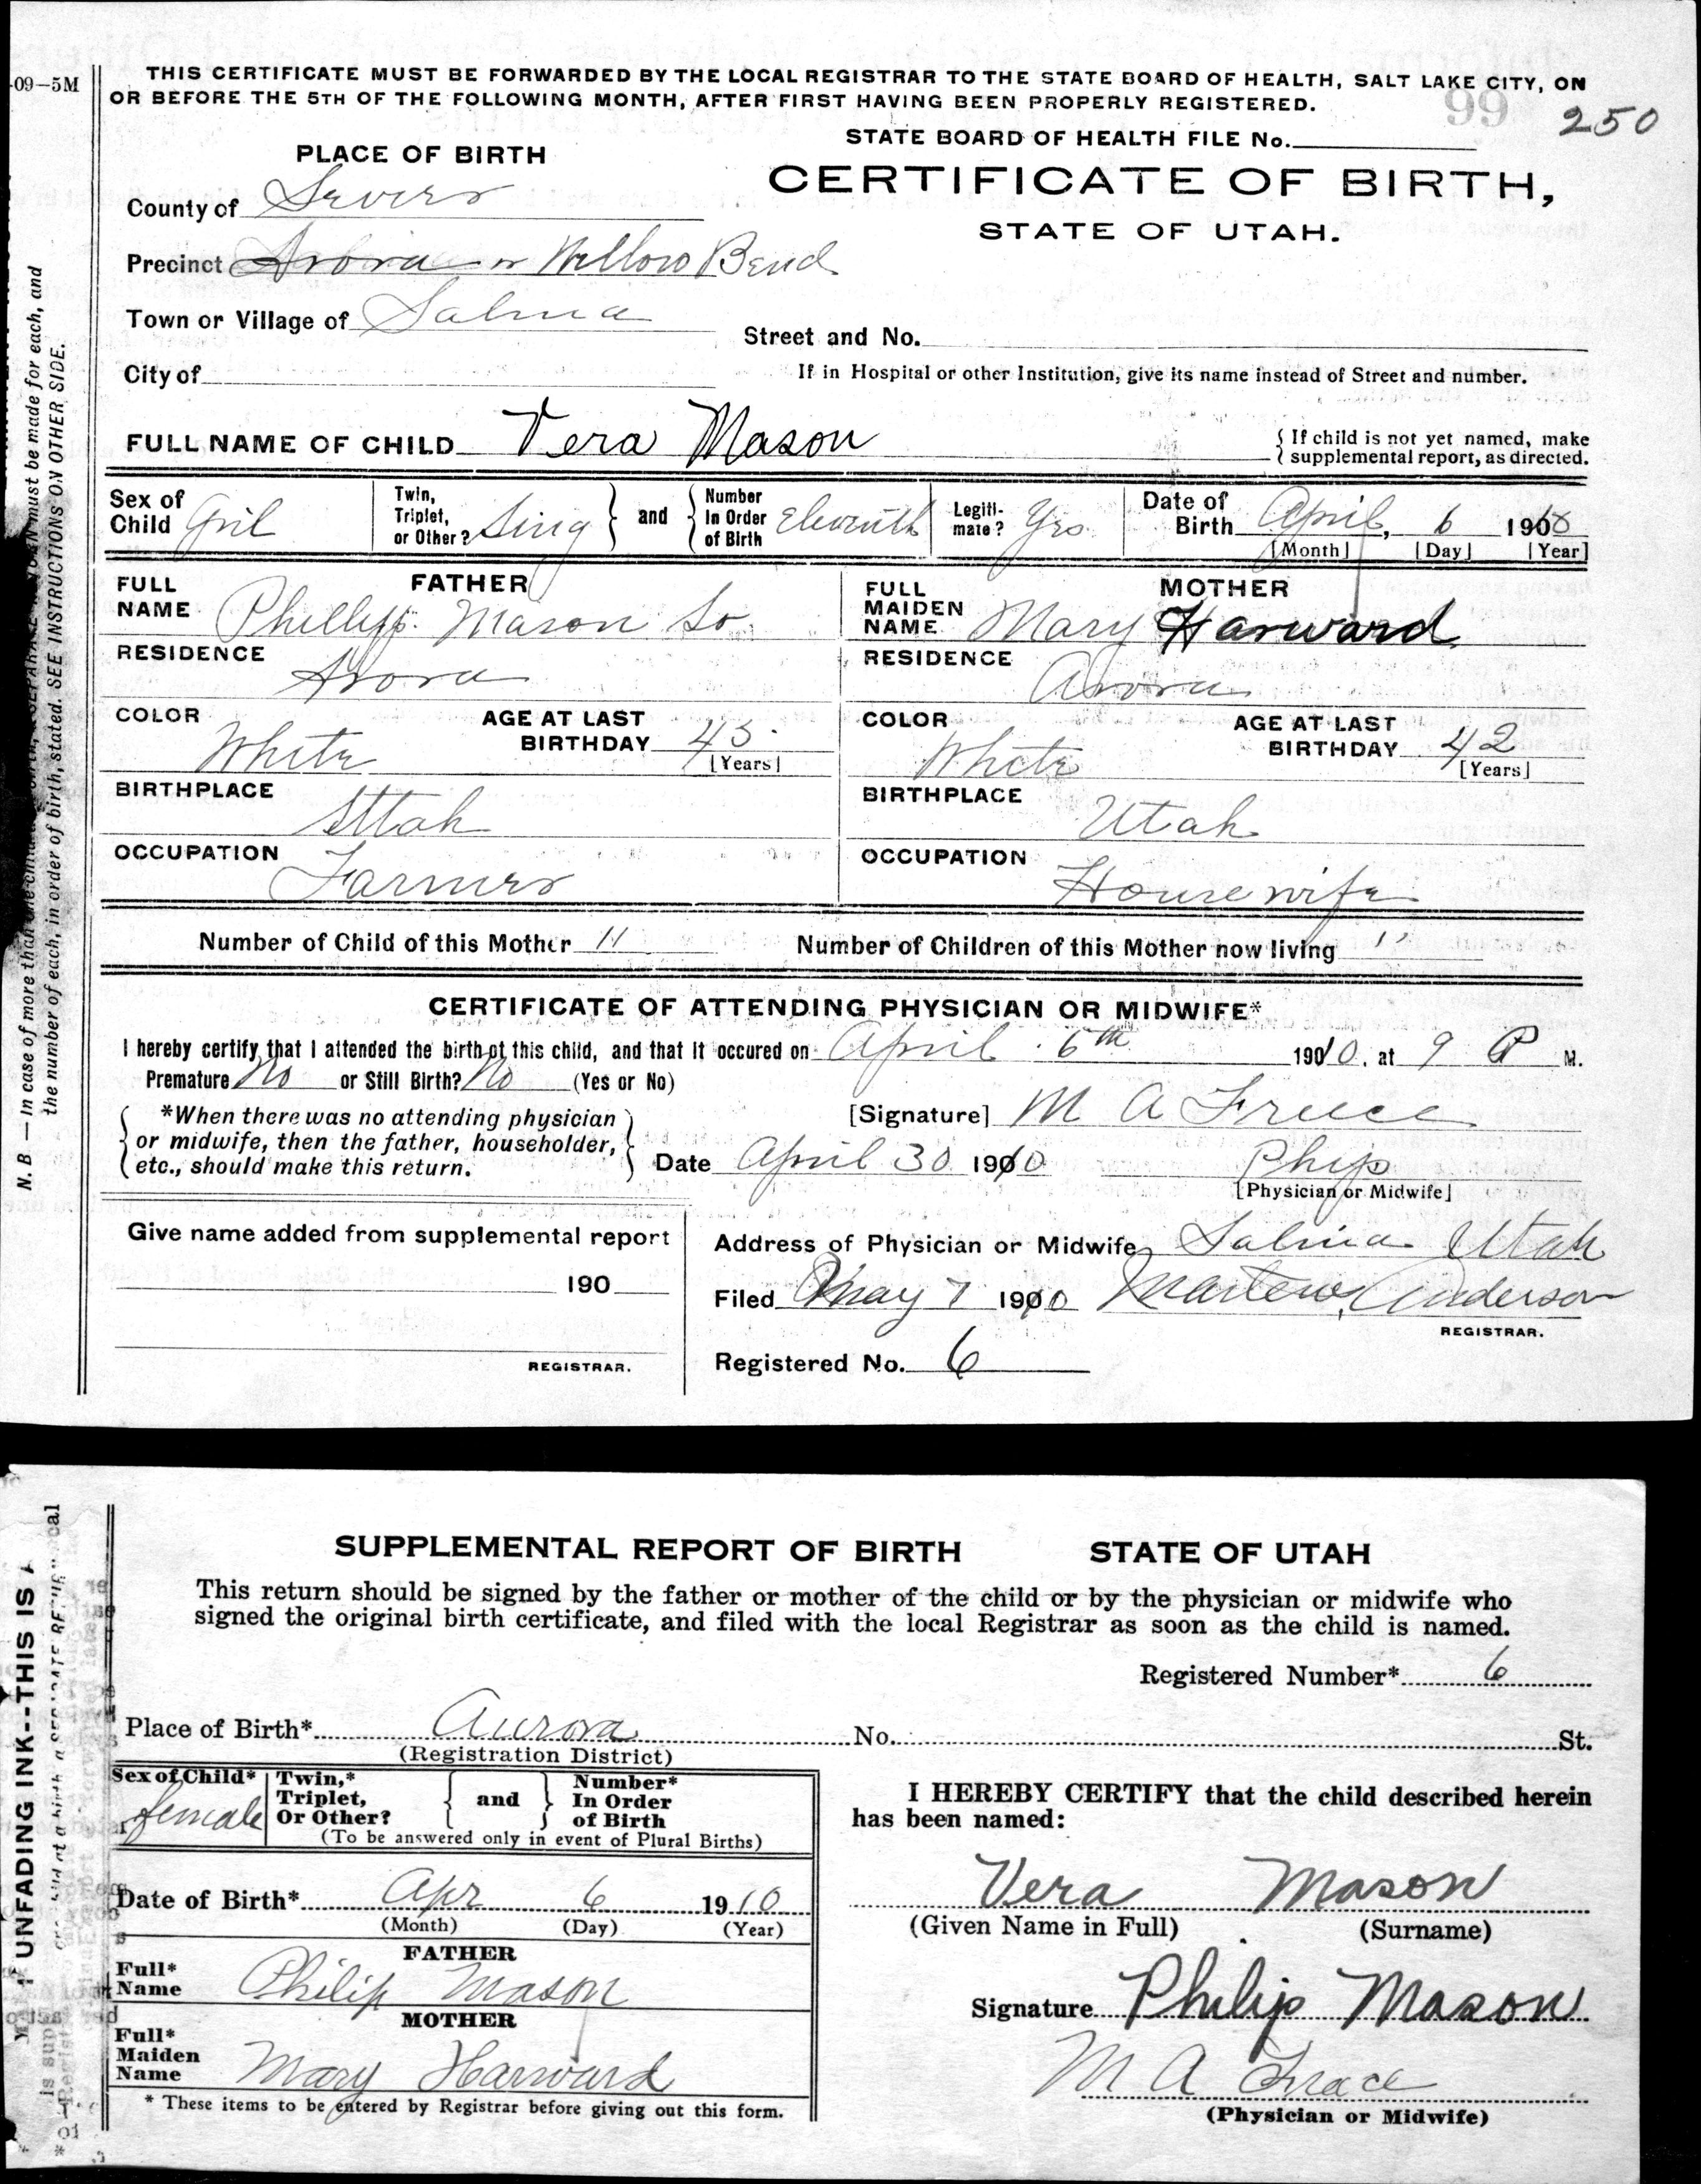 09—5M
THIS CERTIFICATE MUST BE FORWARDED BY THE LOCAL REGISTRAR TO THE STATE BOARD OF HEALTH, SALT LAKE CITY, ON
OR BEFORE THE 5TH OF THE FOLLOWING MONTH, AFTER FIRST HAVING BEEN PROPERLY REGISTERED.
99 250
STATE BOARD OF HEALTH FILE No.
PLACE OF BIRTH
CERTIFICATE OF BIRTH,
STATE OF UTAH.
County of Sevier
Precinct Arora or Willow Bend
Town or Village of Salina
Street and No.
City of
If in Hospital or other Institution, give its name instead of Street and number.
FULL NAME OF CHILD Vera Mason
{ If child is not yet named, make
supplemental report, as directed.
Sex of Child Gril
Twin, Triplet, or Other? Sing } and { Number In Order of Birth Eleventh
Legitimate? Yes
Date of Birth April, 6 1910
[Month] [Day] [Year]
FATHER
FULL NAME Phillip Mason Sr
RESIDENCE Arora
COLOR White AGE AT LAST BIRTHDAY 43
[Years]
BIRTHPLACE Uttah
OCCUPATION Farmer
MOTHER
FULL MAIDEN NAME Mary Harward
RESIDENCE Arora
COLOR White AGE AT LAST BIRTHDAY 42
[Years]
BIRTHPLACE Utah
OCCUPATION Housewife
Number of Child of this Mother 11 Number of Children of this Mother now living 11
CERTIFICATE OF ATTENDING PHYSICIAN OR MIDWIFE*
I hereby certify that I attended the birth of this child, and that it occured on April 6th 1910, at 9 P M.
Premature No or Still Birth? No (Yes or No)
{ *When there was no attending physician
or midwife, then the father, householder,
etc., should make this return. }
[Signature] M A Freece
Date April 30 1910 Phys
[Physician or Midwife]
Give name added from supplemental report
190
REGISTRAR.
Address of Physician or Midwife Salina Utah
Filed May 7 1910 Anderson
REGISTRAR.
Registered No. 6
N. B.—In case of more than one child must be made for each, and
the number of each, in order of birth, stated. SEE INSTRUCTIONS ON OTHER SIDE.
SUPPLEMENTAL REPORT OF BIRTH STATE OF UTAH
This return should be signed by the father or mother of the child or by the physician or midwife who
signed the original birth certificate, and filed with the local Registrar as soon as the child is named.
Registered Number* 6
Place of Birth* Aurora No. St.
(Registration District)
Sex of Child* female
Twin,* Triplet, Or Other? { and } Number* In Order of Birth
(To be answered only in event of Plural Births)
Date of Birth* Apr 6 1910
(Month) (Day) (Year)
FATHER
Full* Name Philip Mason
MOTHER
Full* Maiden Name Mary Harward
* These items to be entered by Registrar before giving out this form.
I HEREBY CERTIFY that the child described herein
has been named:
Vera Mason
(Given Name in Full) (Surname)
Signature Philip Mason
M A
(Physician or Midwife)
UNFADING INK--THIS IS A